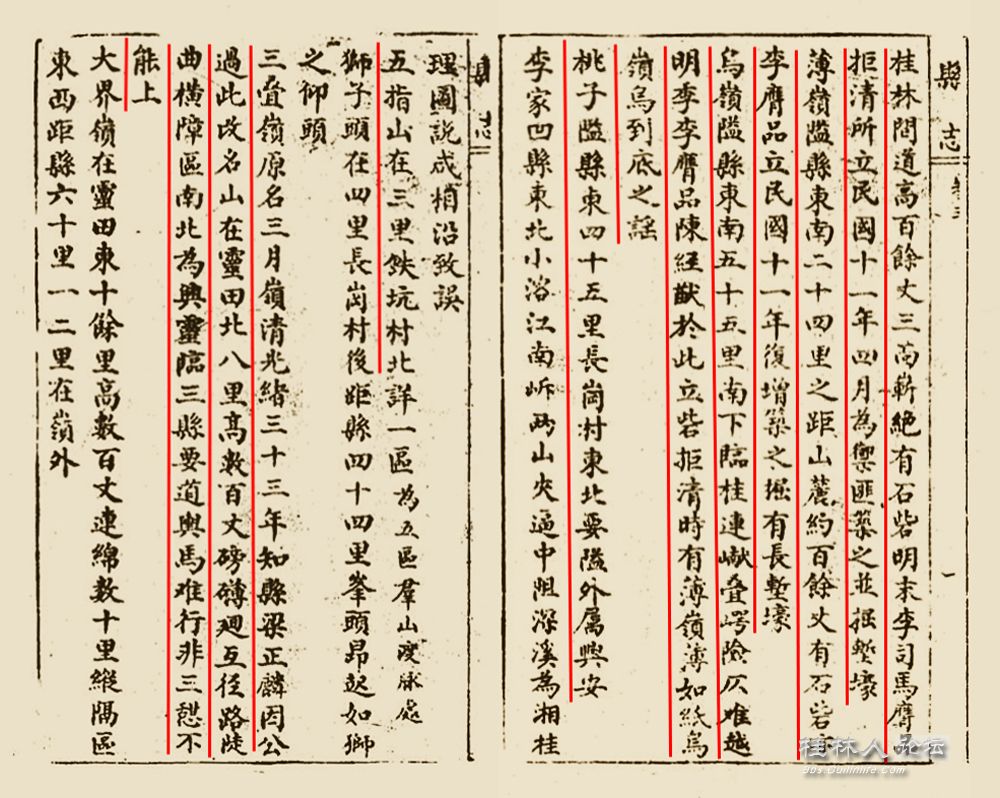 縣志 卷三 一
桂林間道高百餘丈三面嶄絕有石砦明末李司馬膺品
拒清所立民國十一年四月為禦匪築之並掘塹壕
薄嶺隘縣東南二十四里之距山麓約百餘丈有石砦
李膺品立民國十一年復增築之掘有長塹壕
烏嶺隘縣東南五十五里南下臨桂連巘叠崿險仄难越
明季李膺品陳經猷於此立砦拒清時有薄嶺薄如紙烏
嶺烏到底之謠
桃子隘縣東四十五里長崗村東北要隘外属興安
李家凹縣東北小溶江南岍两山夾逼中阻深溪為湘桂
縣志
理圖説成相沿致誤
五指山在三里鉄坑村北詳一區為五區羣山发脉處
獅子頭在四里長崗村後距縣四十四里峯頭昂起如獅
之仰頭
三叠嶺原名三月嶺清光緒三十三年知縣梁正麟因公
過此改名山在靈田北八里高数百丈磅礴廻互徑路陡
曲橫障區南北為興靈臨三縣要道輿馬难行非三憇不
能上
大界嶺在靈田東十餘里高数百丈連綿数十里縱隔區
東西距縣六十里一二里在嶺外
桂林人论坛
bbs.Guilinlife.com